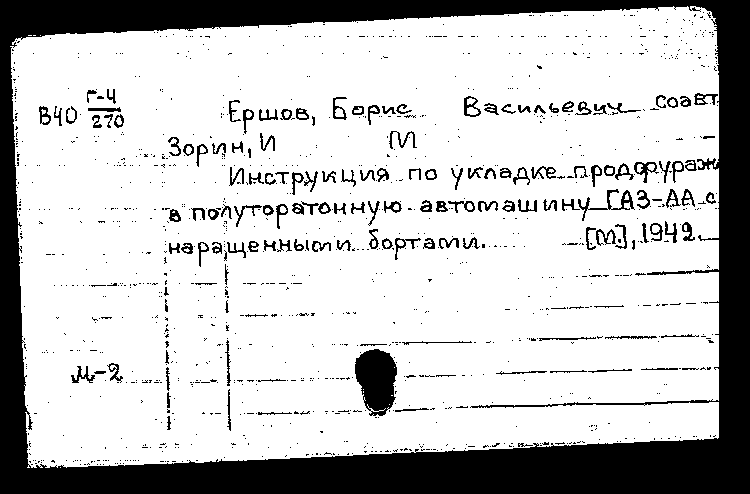 В40 Г-4/270
Ершов, Борис Васильевич соавт
Зорин, И М
Инструкция по укладке продфураж
в полуторатонную автомашину ГАЗ-АА с
наращенными бортами. [М.], 1942.
М-2